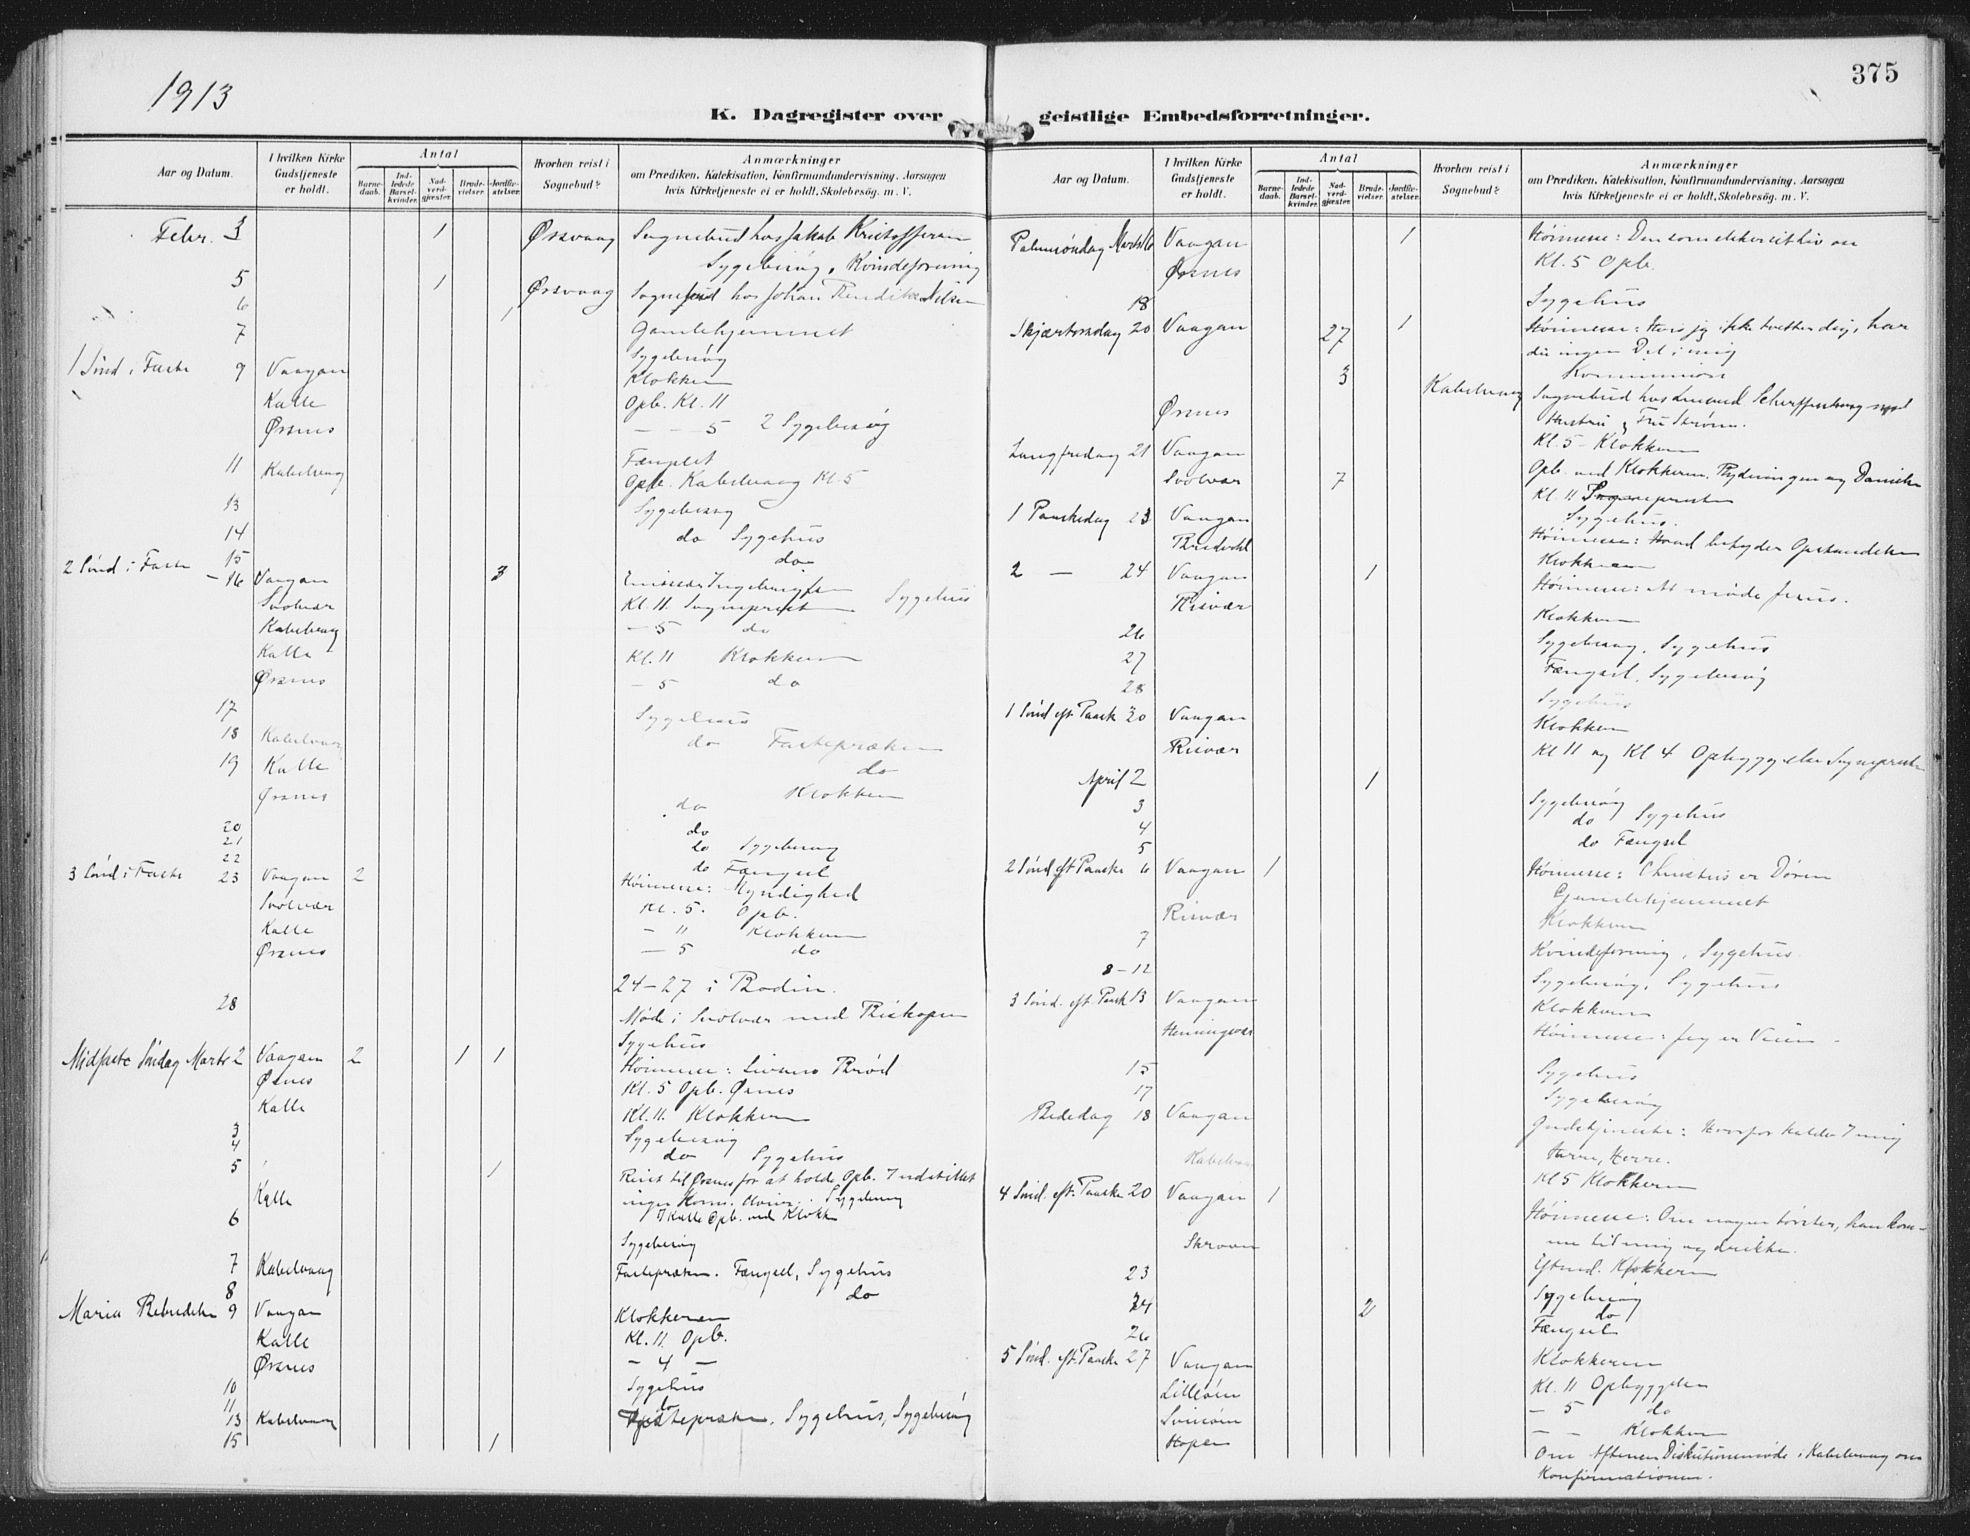 1913
375
K. Dagregister over geistlige Embedsforretninger.
Aar og Datum.
I hvilken Kirke Gudstjeneste er holdt.
Antal
Barne-daab.
Ind-ledede Barsel-kvinder.
Nad-verd-gjæster.
Brude-vielser.
Jordfæ-stelser.
Hvorhen reist i Sognebud?
Anmærkninger
om Prædiken, Katekisation, Konfirmandundervisning, Aarsagen
hvis Kirketjeneste ei er holdt, Skolebesög, m. V.
Febr. 3 1 Ørsvaag Sognebud hos Jakob Kristoffersen
Sygebesøg, Kvindeforening
5 1 Ørsvaag Sognebud hos Johan Nilsen
6 Gamlehjemmet
7 Sygebesøg
1 Sønd i Faste 9 Vaagan Klokkeren
Kalle Opb. Kl. 11
Ørsnes — — 5 2 Sygebesøg
Fængslet
11 Kabelvaag Opb. Kabelvaag Kl. 5
13 Sygebesøg
14 do Sygehus
15 do
2 Sønd i Faste – 16 Vaagan 3 Emissær
Svolvær Kl. 11. Sogneprest Sygehus
Kabelvaag — 5 do
Kalle Kl. 11 Klokkeren
Ørsnes — 5 do
17 Sygehus
18 Kabelvaag do Fastepræken
19 Kalle do
Ørsnes do Klokkeren
20 do
21 do Sygebesøg
22 do Fængsel
3 Sønd i Faste 23 Vaagan 2 Høimesse: Myndighed
Svolvær Kl. 5. Opb.
Kalle — 11 Klokkeren
Ørsnes — 5 do
24–27 i Bodin.
28 Møde i Svolvær med Biskopen
Sygehus
Midfaste Søndag Marts 2 Vaagan 2 1 1 Høimesse: Livsens Brød
Ørsnes Kl. 5 Opb. Ørsnes
Kalle Kl. 11. Klokkeren
3 Sygebesøg
4 do Sygehus
5 1 Reist til Ørsnes for at holde Opb. Indstillet
Kalle Sygebesøg
I Kalle Opb. ved Klokk
6 Sygebesøg
7 Kabelvaag Fastepræken. Fængsel, Sygehus
8 do
Maria Bebudelse 9 Vaagan Klokkeren
Kalle Kl. 11. Opb.
Ørsnes — 4 —
10 Sygehus
11 do
13 Kabelvaag Fastepræken, Sygehus, Sygebesøg
15 1
Aar og Datum.
I hvilken Kirke Gudstjeneste er holdt.
Antal
Barne-daab.
Ind-ledede Barsel-kvinder.
Nad-verd-gjæster.
Brude-vielser.
Jordfæ-stelser.
Hvorhen reist i Sognebud?
Anmærkninger
om Prædiken, Katekisation, Konfirmandundervisning, Aarsagen
hvis Kirketjeneste ei er holdt, Skolebesög, m. V.
Palmesøndag Marts 16 Vaagan 1 Høimesse: Den som elsker sit liv
Ørsnes Kl. 5 Opb.
18 Sygehus
Skjærtorsdag 20 Vaagan 27 1 Høimesse: Hvis jeg ikke tvætter dig, har
du ingen Del i mig
3 Kommunion
Kabelvaag Sognebud hos
Ørsnes Hustru & Fru Strøm.
Kl. 5 – Klokkeren
Langfredag 21 Vaagan Opb. ved Klokkeren,
Svolvær 7 Kl. 11 Sogneprest
Sygehus.
1 Paaskedag 23 Vaagan Høimesse: Hvad betyder Opstandelsen
Klokkeren
2 — 24 Vaagan 1 Høimesse: At møde Jesus.
Risvær Klokkeren
26 Sygebesøg, Sygehus
27 Fængsel, Sygebesøg
28 Sygehus
1 Sønd eft. Paaske 30 Vaagan Klokkeren
Risvær Kl 11 og Kl 4 Opbyggelse Sogneprest
April 2 1
3 Sygebesøg
4 do Sygehus
5 do Fængsel
2 Sønd eft Paaske 6 Vaagan 1 Høimesse: Christus er Døren
Gamlehjemmet
Risvær Klokkeren
7 Kvindeforening, Sygehus
8–12 Sygebesøg, Sygehus
3 Sønd. eft. Paask 13 Vaagan Klokkeren
Henningsvær Høimesse: Jeg er Veien –
15 Sygehus
17 Sygebesøg
Bededag 18 Vaagan Gudstjeneste: Hvorfor kalder I mig
Herre, Herre.
Kabelvaag Kl 5 Klokkeren
4 Sønd. eft. Paaske 20 Vaagan 1 Høimesse: Om nogen tørster, han kom-
me til mig og drikke.
Skroven Klokkeren
23 Sygebesøg
24 2 do
26 Fængsel
5 Sønd. eft. Paaske 27 Vaagan Klokkeren
Kl. 11 Opbyggelse
Svinøen — 5 do
Hopen — — Klokkeren
Om Aftenen Diskutionsmøde i Kabelvaag om
Konfirmationen.